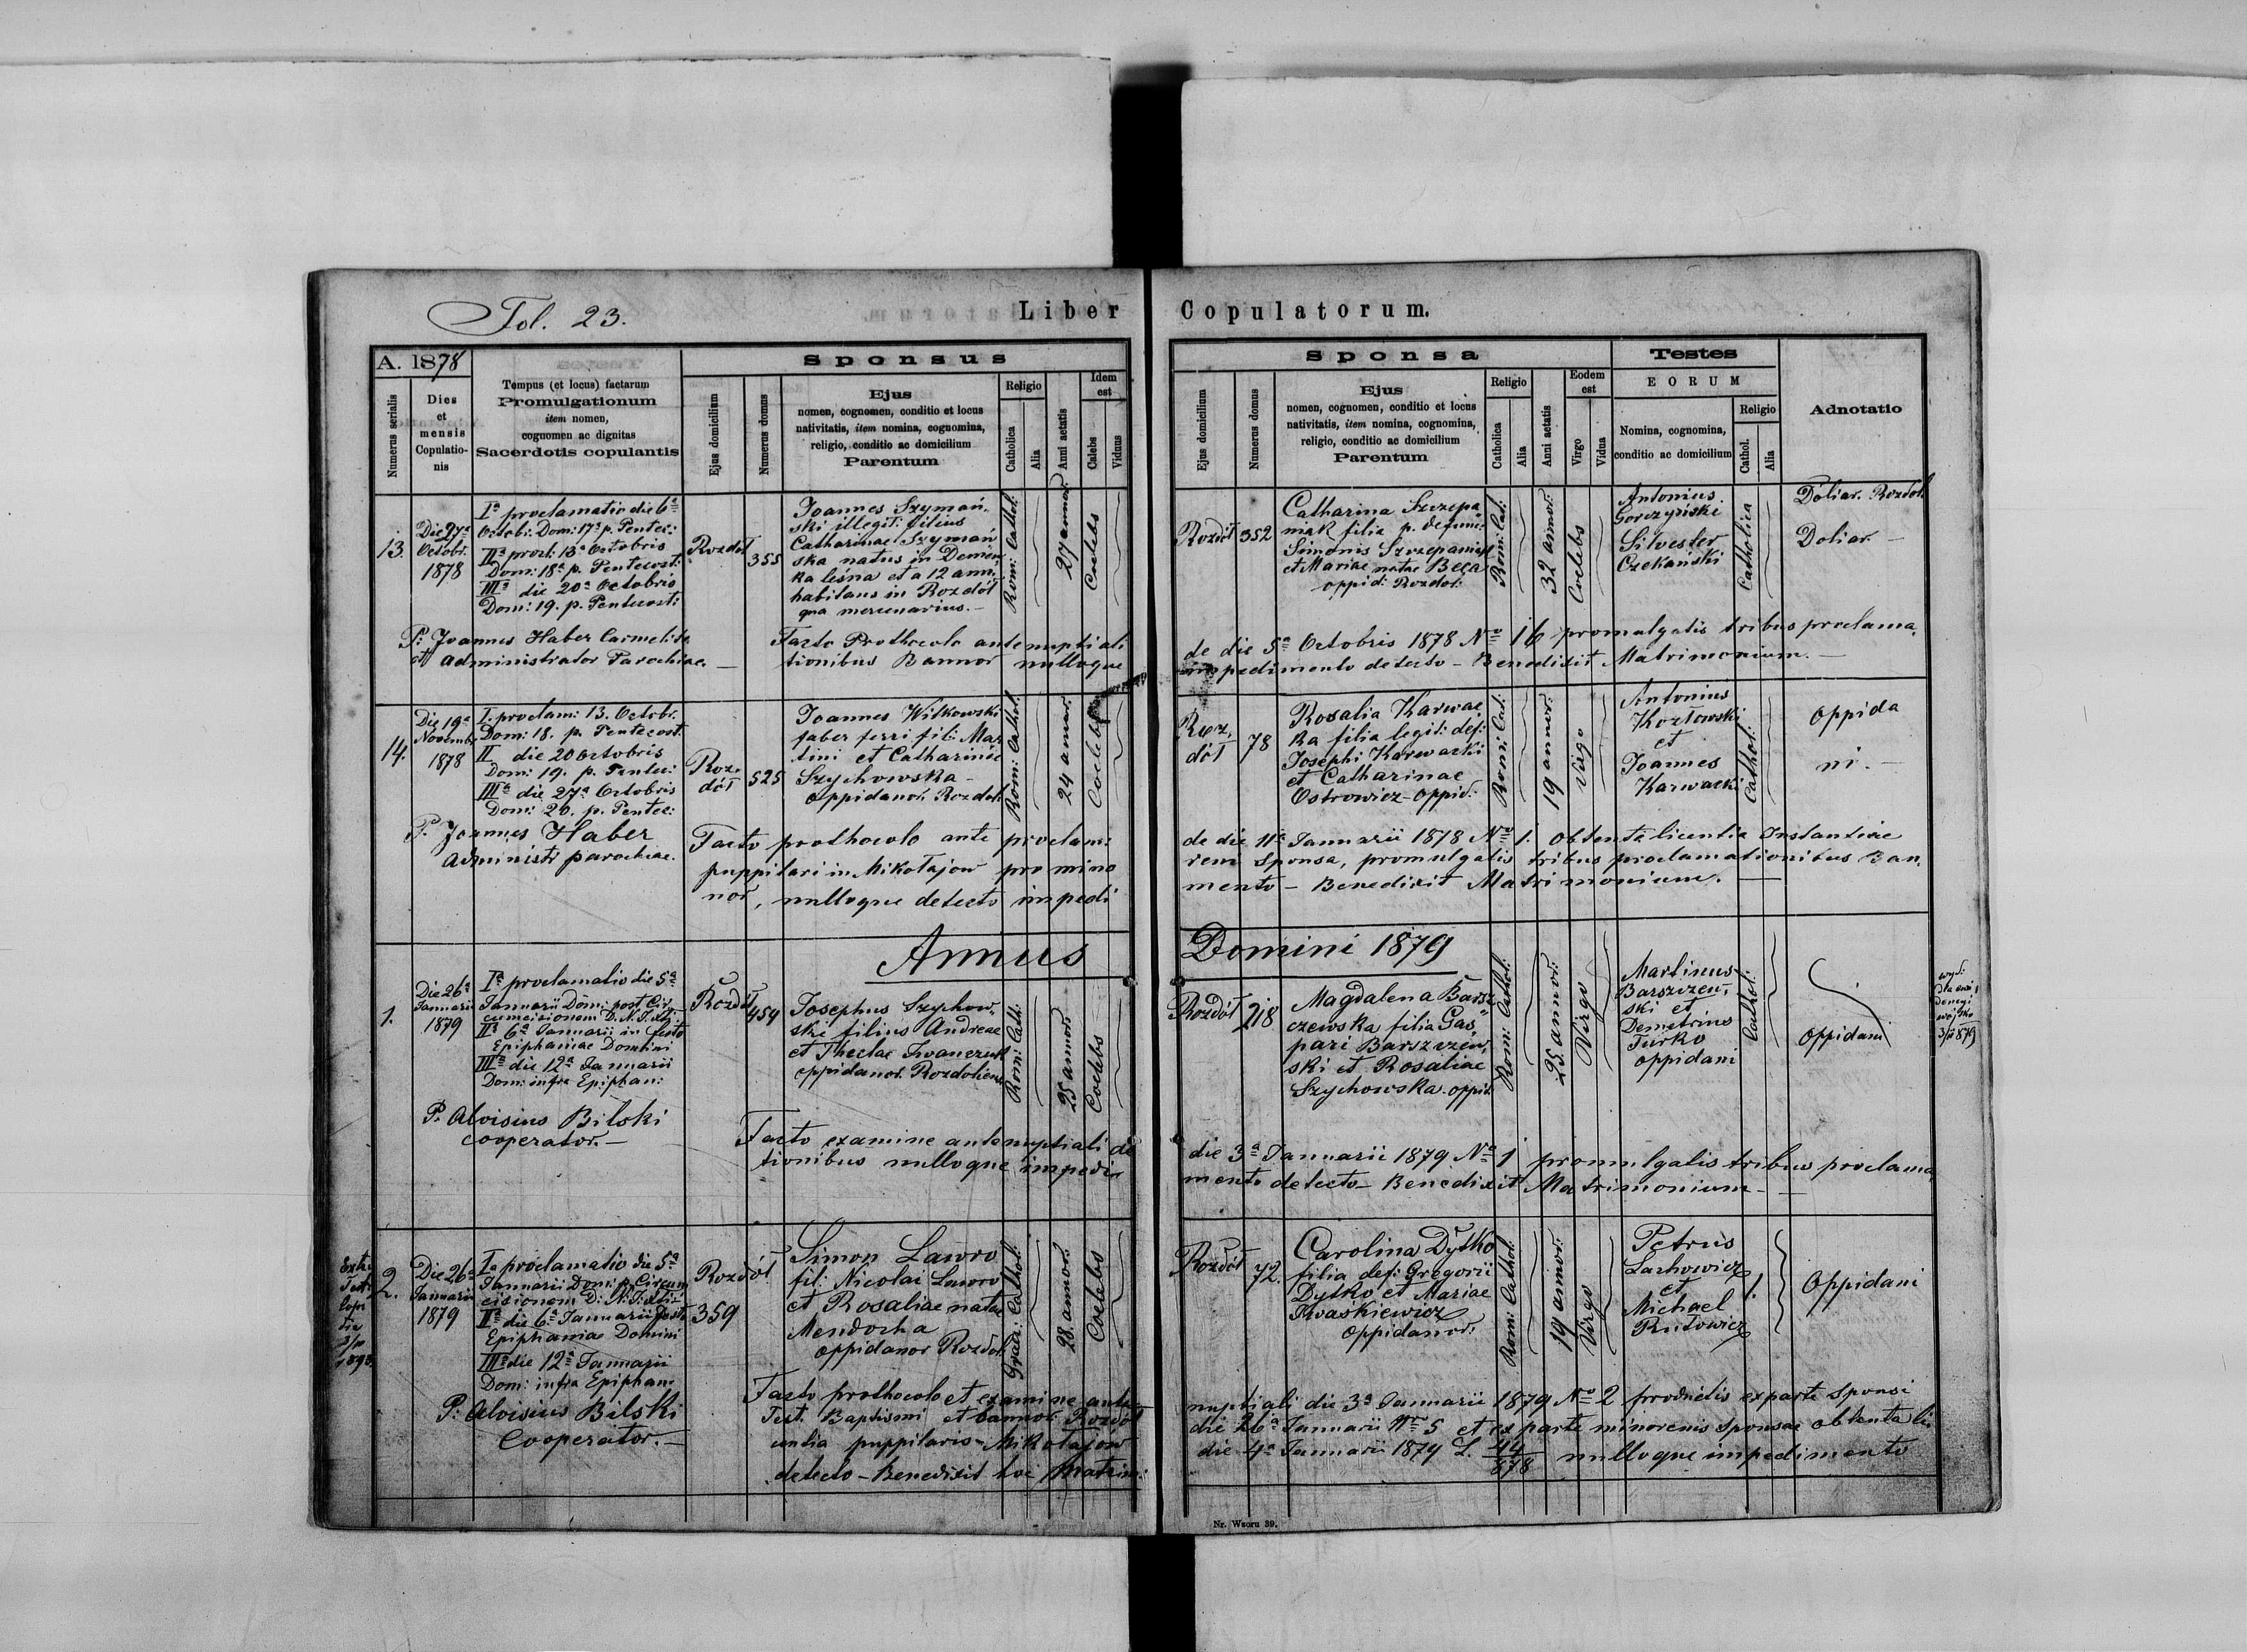 Fol. 23.
Liber Copulatorum.
A. 1878
Numerus serialis
Dies
et
mensis
Copulatio-
nis
Tempus (et locus) factarum
Promulgationum
item nomen,
cognomen ac dignitas
Sacerdotis copulantis
Sponsus
Ejus domicilium
Numerus domus
Ejus
nomen, cognomen, conditio et locus
nativitatis, item nomina, cognomina,
religio, conditio ac domicilium
Parentum
Religio
Catholica
Alia
Anni aetatis
Idem
est
Calebs
Viduus
Sponsa
Ejus domicilium
Numerus domus
Ejus
nomen, cognomen, conditio et locus
nativitatis, item nomina, cognomina,
religio, conditio ac domicilium
Parentum
Religio
Catholica
Alia
Anni aetatis
Eodem
est
Virgo
Vidua
Testes
EORUM
Nomina, cognomina,
conditio ac domicilium
Religio
Cathol.
Alia
Adnotatio
13.
Die 27a
Octobr.
1878
Ia proclamatio die 6a
Octobr: Dom: 17a p. Pentec:
IIa procl: 13a Octobris
Dom: 18a p. Pentecost:
IIIa die 20a Octobris
Dom: 19. p. Pentecost:
P: Joannes Haber Carmelita
et administrator Parochiae. —
Rozdół
355
Joannes Szymań-
ski illegit: filius
Catharinae Szymań
ska natus in Demen
ka leśna et a 12 anni
habitans in Rozdół
qua mercenarius. —
Rom: Cathol:
27 annor.
Coelebs
Rozdół
352
Catharina Szczepa
niak filia p. defunc:
Simonis Szczepaniak
et Mariae natae Bęca
oppid: Rozdol:
Rom: Cat:
32 annor:
Coelebs
Antonius
Gorczyński
Silvester
Czekański
Catholica
Doliar. Rozdoł
Doliar. —
Facto Prothocolo antenuptiali de die 5a Octobris 1878 No 16 promulgatis tribus proclama,
tionibus Bannor nulloque impedimento detecto — Benedixit Matrimonium. —
14.
Die 19a
Novembr
1878
I. proclam: 13. Octobr.
Dom: 18. p. Pentecost.
II die 20 Octobris
Dom: 19. p. Pentec:
IIIa die 27a Octobris
Dom: 20. p. Pentec:
P. Joannes Haber
Administr parochiae.
Roz.
dół
525
Joannes Witkowski
faber ferri fil: Mar
tini et Catharinae
Szychowska —
oppidanor. Rozdol:
Rom: Cathol:
24 annor.
Coelebs
Roz,
dół
78
Rosalia Karwac
ka filia legit: def:
Josephi Karwacki
et Catharinae
Ostrowicz — oppid:
Rom: Cat:
19 annor:
Virgo
Antonius
Kozłowski
et
Joannes
Karwacki
Cathol:
Oppida
ni. —
Facto prothocolo ante proclam: de die 11a Januarii 1878 No 1. obtenta licentia Instantiae
puppilari in Mikołajow pro mino rem Sponsa, promulgatis tribus proclamationibus Ban,
nor, nulloque detecto impedi mento — Benedixit Matrimonium. —
Annus Domini 1879
1.
Die 26a
Januarii
1879
Ia proclamatio die 5a
Januarii Dom: post Cir,
cumcisionem D. N. J. Xti
IIa 6a Januarii in festo
Epiphaniae Domini
IIIa die 12a Januarii
Dom: infra Epiphan:
P. Aloisius Bilski
cooperator. —
Rozdół
454
Josephus Szychow,
ski filius Andreae
et Theclae Iwanczuk
oppidanor. Rozdolien
Rom: Cath:
25 annor.
Coelebs
Rozdół
218
Magdalena Barsz
czewska filia Gas,
pari Barszczew,
ski et Rosaliae
Szychowska. oppid.
Rom: Cathol:
25 annor.
Virgo
Martinus
Barszczew,
ski et
Demetrius
Turko
oppidani
Cathol:
Oppidani
3/II 879
Facto examine antenuptiali de die 3a Januarii 1879 No 1 promulgatis tribus proclama,
tionibus nulloque impedi mento detecto — Benedixit Matrimonium —
2.
Die 26a
Januarii
1879
Ia proclamatio die 5a
Januarii Dom: p. Circum
cisionem D: N. J: Xti
IIa die 6a Januarii festo
Epiphaniae Domini
IIIa die 12a Januarii
Dom: infra Epiphan:
P: Aloisius Bilski
Cooperator. —
Rozdół
359
Simon Lawro
fil: Nicolai Lawro
et Rosaliae natae
Mendocha
oppidanor Rozdol:
Graeci: Cathol:
28. annor.
Coelebs
Rozdół
72.
Carolina Dytko
filia def: Gregorii
Dytko et Mariae
Kwaśkiewicz
oppidanor.
Rom: Cathol:
19 annor:
Virgo
Petrus
Lachowicz
et
Michael
Rutowicz
1.
Oppidani
Facto prothocolo et examine ante nuptiali die 3a Januarii 1879 No 2 productis ex parte Sponsi
Test. Baptismi et bannor. Rozdół die 26a Januarii No 5 et ex parte minorenis Sponsae obtenta li,
centia puppilaris Mikołajów die 4a Januarii 1879 L. 44/878 nulloque impedimento
detecto — Benedixit hoc Matrim:
Nr. Wzoru 39.